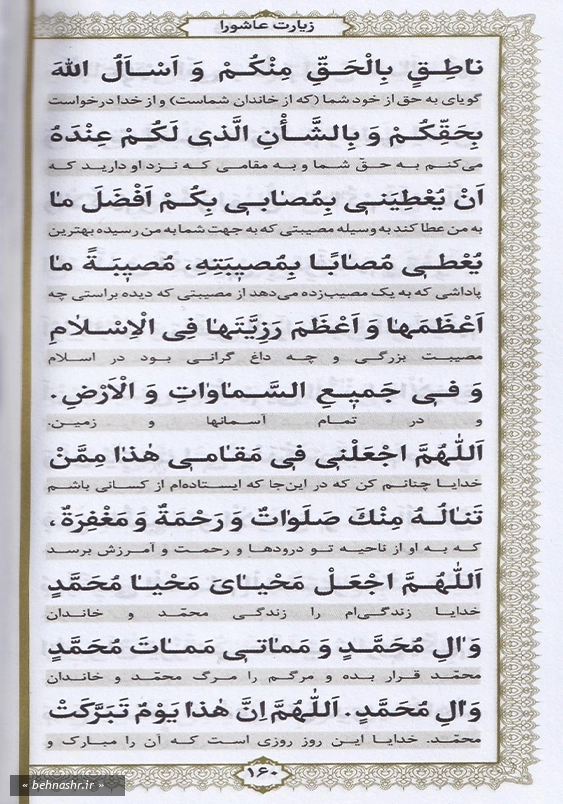 زیارت عاشورا
ناطِقٍ بِالْحَقِّ مِنْکُمْ وَ اَسْاَلُ اللهَ
گویای به حق از خود شما (که از خاندان شماست) و از خدا درخواست
بِحَقِّکُمْ وَ بِالشَّأْنِ الَّذی لَکُمْ عِنْدَهُ
می‌کنم به حقّ شما و به مقامی که نزد او دارید که
اَنْ یُعْطِیَنی بِمُصابی بِکُمْ اَفْضَلَ ما
به من عطا کند به وسیله مصیبتی که به جهت شما به من رسیده بهترین
یُعْطی مُصابًا بِمُصیبَتِهِ، مُصیبَةً ما
پاداشی که به یک مصیب‌زده می‌دهد از مصیبتی که دیده براستی چه
اَعْظَمَها وَ اَعْظَمَ رَزِیَّتَها فِی الْاِسْلامِ
مصیبت بزرگی و چه داغ گرانی بود در اسلام
وَ فی جَمیعِ السَّماواتِ وَ الْاَرْضِ.
و در تمام آسمانها و زمین.
اَللّٰهُمَّ اجْعَلْنی فی مَقامی هٰذا مِمَّنْ
خدایا چنانم کن که در این‌جا که ایستاده‌ام از کسانی باشم
تَنالُهُ مِنْكَ صَلَواتٌ وَ رَحْمَةٌ وَ مَغْفِرَةٌ،
که به او از ناحیه تو درودها و رحمت و آمرزش برسد
اَللّٰهُمَّ اجْعَلْ مَحْیایَ مَحْیا مُحَمَّدٍ
خدایا زندگی‌ام را زندگی محمّد و خاندان
وَ الِ مُحَمَّدٍ وَ مَماتی مَماتَ مُحَمَّدٍ
محمّد قرار بده و مرگم را مرگ محمّد و خاندان
وَ الِ مُحَمَّدٍ. اَللّٰهُمَّ اِنَّ هٰذا یَوْمٌ تَبَرَّکَتْ
محمّد. خدایا این روز روزی است که آن را مبارک و
۱۶۰
« behnashr.ir »